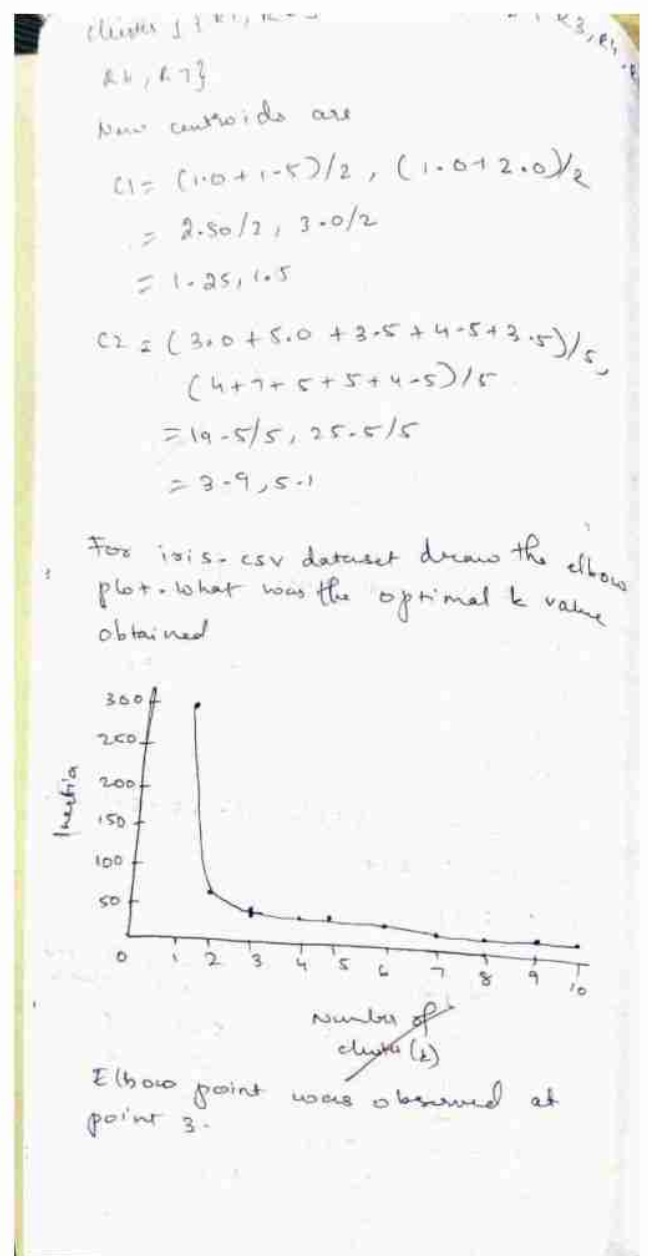 R3, R4
R6, R7}
New centroids are
C1 = (1.0+1.5)/2, (1.0+2.0)/2
= 2.50/2, 3.0/2
= 1.25, 1.5
C2 = (3.0+5.0+3.5+4.5+3.5)/5,
(4+7+5+5+4.5)/5
= 19.5/5, 25.5/5
= 3.9, 5.1
For iris.csv dataset draw the elbow
plot. What was the optimal k value
obtained
300
250
200
150
100
50
Inertia
0 1 2 3 4 5 6 7 8 9 10
Number of
cluster (k)
Elbow point was observed at
point 3.